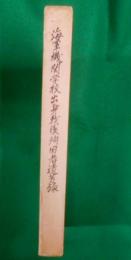 海軍機関学校出身戦後殉国者遺芳録